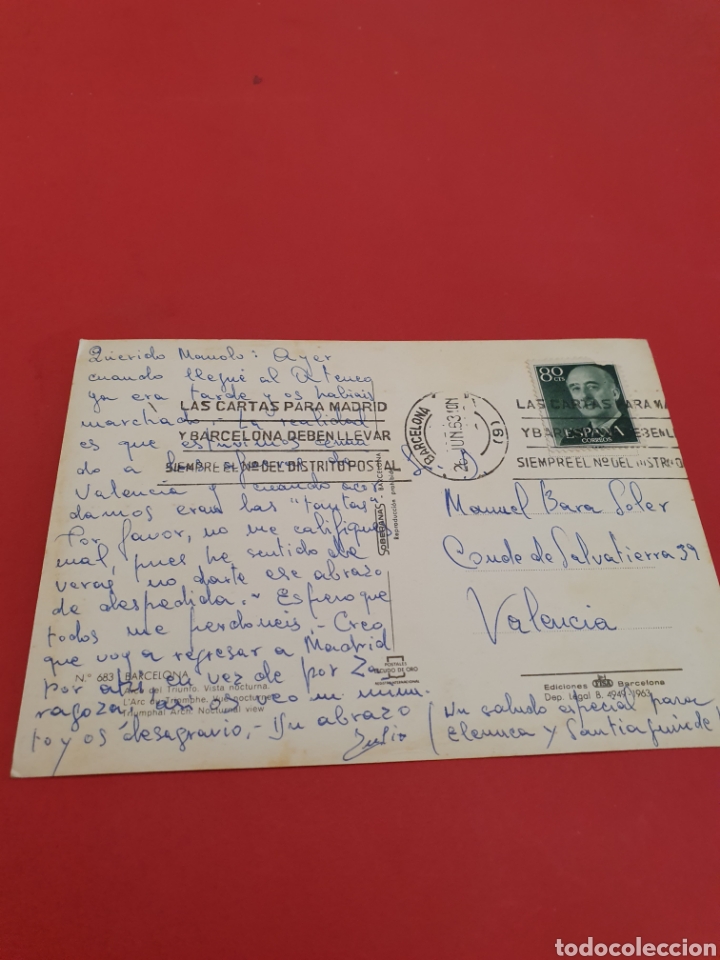 Querido Manolo: Ayer
cuando llegué al Ateneo
ya era tarde y os habíais
marchado. La realidad
es que estuvimos
do a las afueras de
Valencia y cuando acor
damos eran las "tantas"
Por favor, no me califiques
mal, pues he sentido de
veras no darte ese abrazo
de despedida. Espero que
todos me perdoneis. Creo
que voy a regresar a Madrid
por ahí en vez de por Za
ragoza, así os veo un minu
to y os desagravio. Un abrazo
Julio
(Un saludo especial para
y
LAS CARTAS PARA MADRID
Y BARCELONA DEBEN LLEVAR
SIEMPRE EL Nº DEL DISTRITO POSTAL
BARCELONA
JUN.63
(9)
LAS CARTAS PARA MA
Y BARCELONA DEBEN LL
SIEMPRE EL Nº DEL DISTRITO
80 CTS
ESPAÑA
CORREOS
Sr. D.
Manuel Bara Soler
Conde de Salvatierra 39
Valencia
SOBERANAS - BARCELONA
Reproducción prohibida
N.º 683 BARCELONA
Arco del Triunfo. Vista nocturna.
L'Arc de Triomphe. Vue nocturne
Triumphal Arch. Nocturnal view
POSTALES
ESCUDO DE ORO
Ediciones Barcelona
Dep. Legal B. 4949-1963
todocoleccion